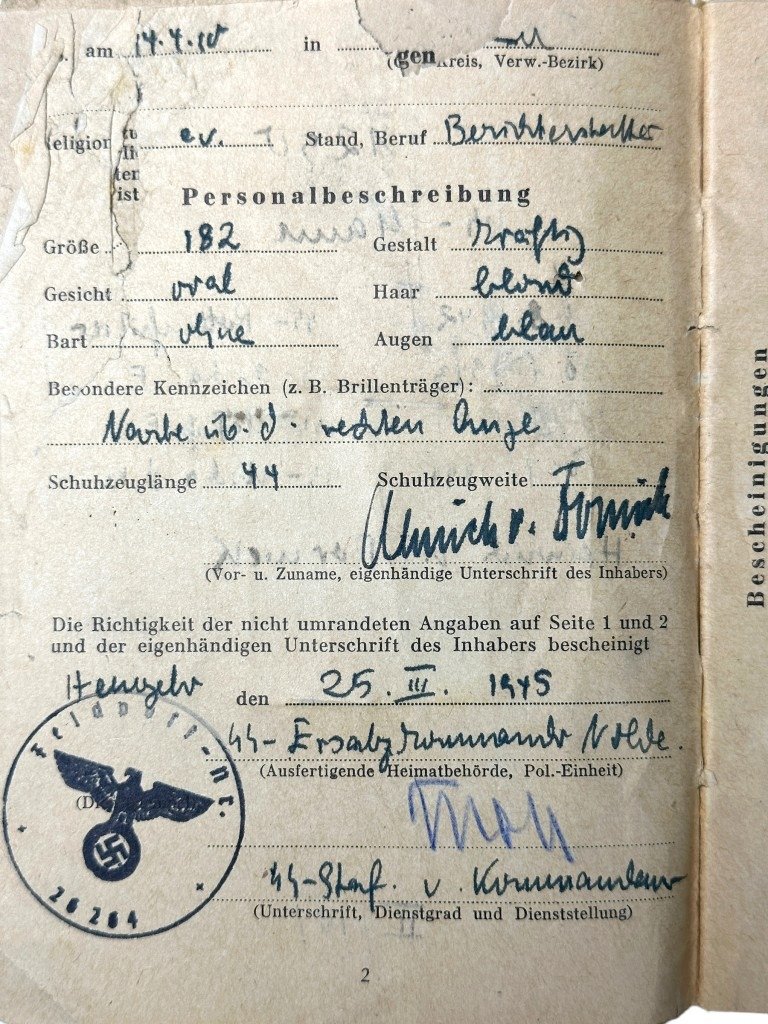 am 14.4.10 in
gen Kreis, Verw.-Bezirk)
eligion ev. Stand, Beruf Berichterstatter
ist
Personalbeschreibung
Größe 182 Gestalt kräftig
Gesicht oval Haar blond
Bart ohne Augen blau
Besondere Kennzeichen (z. B. Brillenträger):
Narbe üb. d. rechten Auge
Schuhzeuglänge 44 Schuhzeugweite
(Vor- u. Zuname, eigenhändige Unterschrift des Inhabers)
Die Richtigkeit der nicht umrandeten Angaben auf Seite 1 und 2
und der eigenhändigen Unterschrift des Inhabers bescheinigt
Hengelo den 25. III. 1945
Feldpost-Nr.
SS-Ersatzkommando
(Ausfertigende Heimatbehörde, Pol.-Einheit)
SS-Staf. u. Kommandeur
26264
(Unterschrift, Dienstgrad und Dienststellung)
2
Bescheinigungen